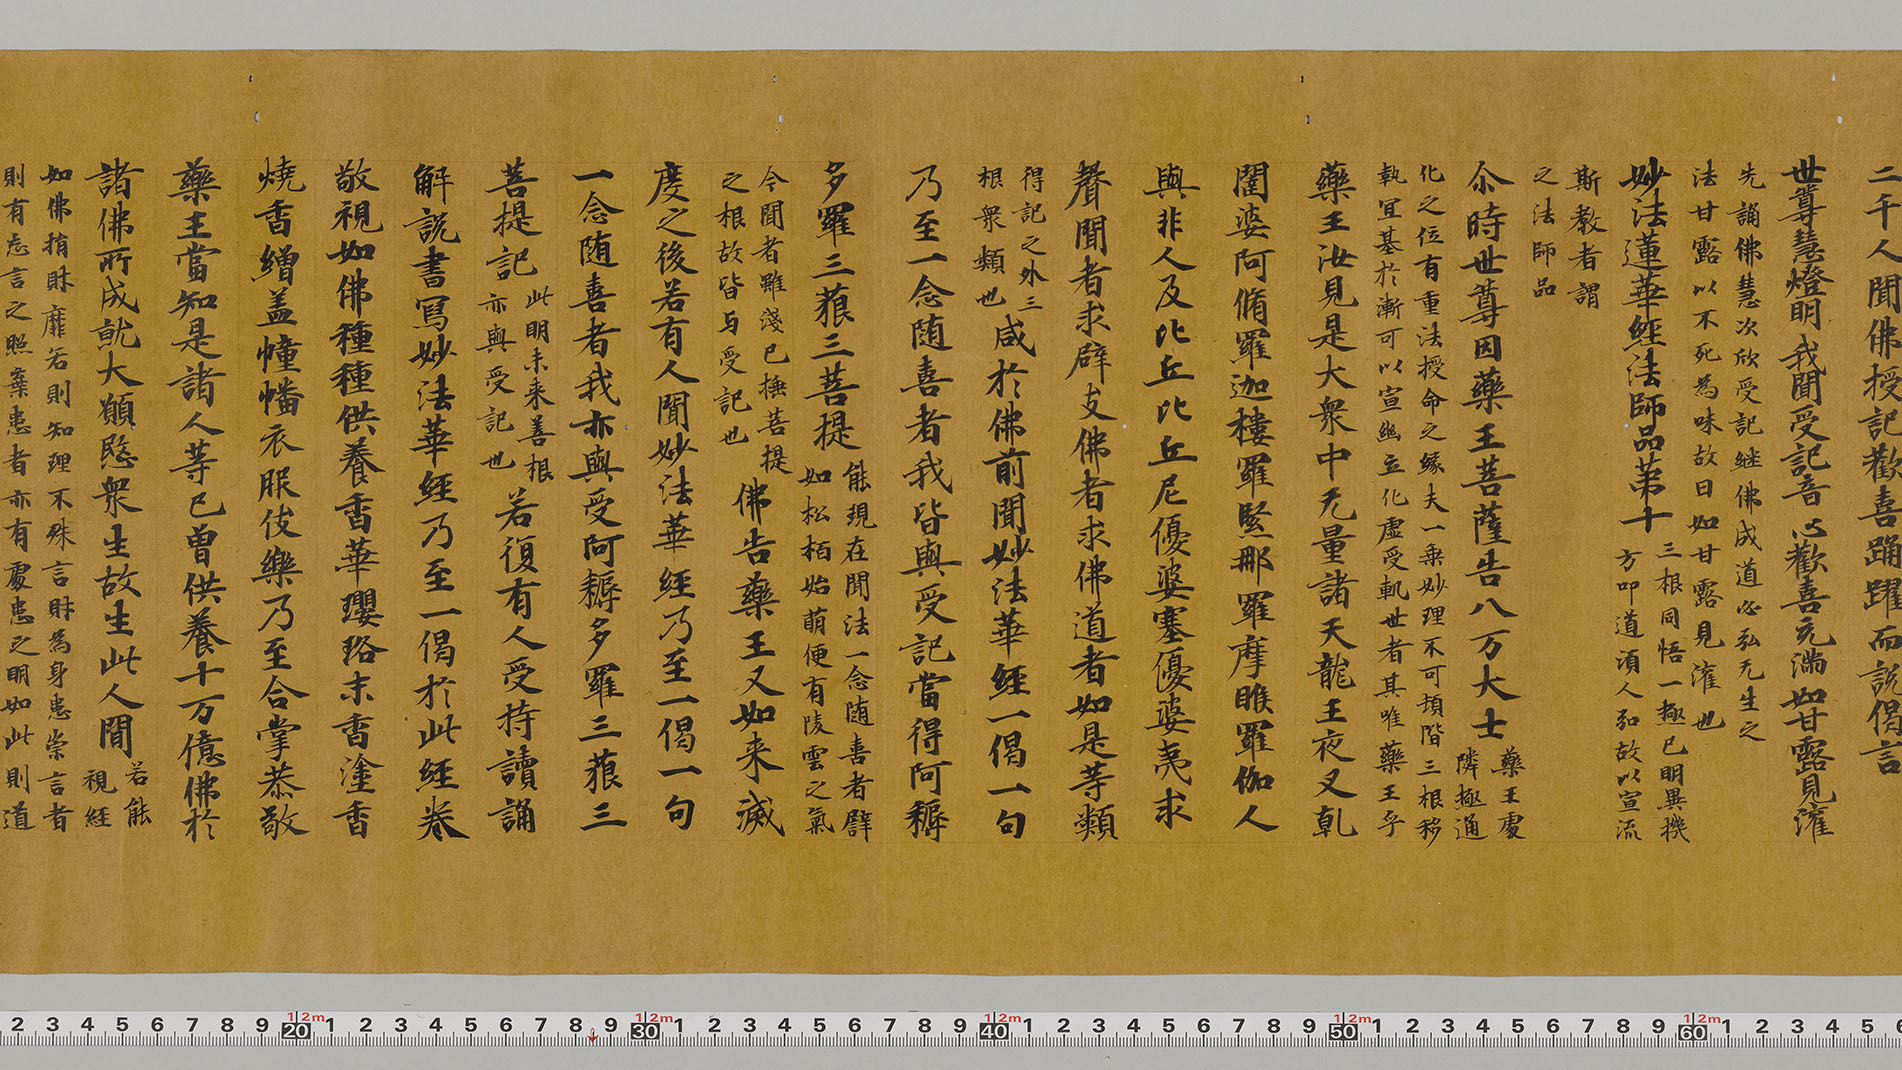 二千人聞佛授記歡喜踊躍而說偈言
世尊慧燈明我聞受記音心歡喜充滿如甘露見灌
先誦佛慧次欣受記継佛成道必弘无生之
法甘露以不死為味故曰如甘露見灌也
妙法蓮華經法師品苐十
三根同悟一極已明異機
方叩道須人弘故以宣流
斯教者謂
之法師品
尒時世尊因藥王菩薩告八万大士
藥王處
隣極通
化之位有重法授命之緣夫一乗妙理不可頓階三根移
執冝基於漸可以宣幽立化虛受軌世者其唯藥王乎
藥王汝見是大衆中无量諸天龍王夜叉乹
闥婆阿脩羅迦樓羅緊那羅摩睺羅伽人
與非人及比丘比丘尼優婆塞優婆夷求
聲聞者求辟支佛者求佛道者如是等類
得記之外三
根衆類也
咸於佛前聞妙法華經一偈一句
乃至一念随喜者我皆與受記當得阿耨
多羅三藐三菩提
能現在聞法一念随喜者臂
如松栢始萌便有陵雲之氣
今聞者雖淺已極菩提
之根故皆与受記也
佛告藥王又如来滅
度之後若有人聞妙法華經乃至一偈一句
一念随喜者我亦與受阿耨多羅三藐三
菩提記
此明未来善根
亦與受記也
若復有人受持讀誦
解說書寫妙法華經乃至一偈於此經卷
敬視如佛種種供養香華瓔珞末香塗香
燒香繒盖幢幡衣服伎樂乃至合掌恭敬
藥王當知是諸人等已曽供養十万億佛於
諸佛所成就大願愍衆生故生此人間
若能
視經
如佛捐財靡若則知理不殊言財為身患崇言者
則有忘言之照棄患者亦有處患之明如此則道